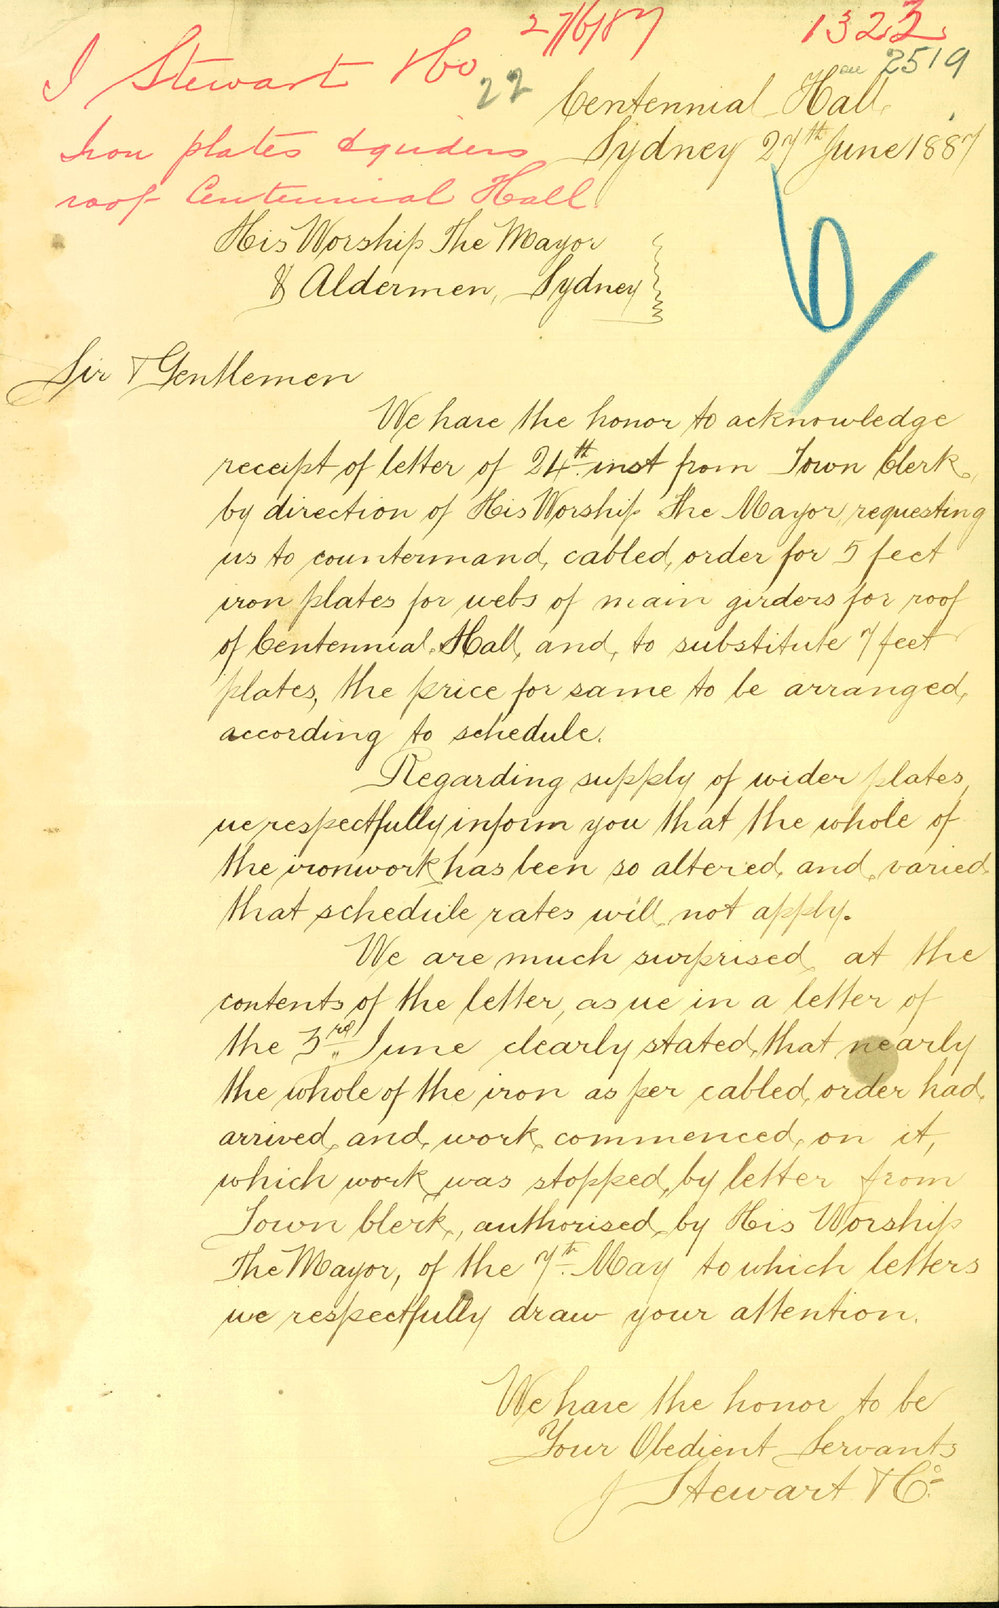 27/6/87 1322
J Stewart & Co 22 2519
Centennial Hall,
Iron plates & girders Sydney 27th June 1887
roof Centennial Hall
His Worship The Mayor
& Aldermen, Sydney
6/
Sir & Gentlemen
We have the honor to acknowledge
receipt of letter of 24th inst from Town Clerk,
by direction of His Worship The Mayor, requesting
us to countermand, cabled, order for 5 feet
iron plates for webs of main girders for roof
of Centennial Hall, and, to substitute 7 feet
plates, the price for same to be arranged,
according to schedule.
Regarding supply of wider plates,
we respectfully inform you that the whole of
the ironwork has been so altered, and, varied
that schedule rates will not apply.
We are much surprised at the
contents of the letter, as we in a letter of
the 3rd June clearly stated, that nearly
the whole of the iron as per cabled, order had,
arrived, and, work, commenced, on it,
which work was stopped, by letter from
Town Clerk, authorised, by His Worship
The Mayor, of the 7th May to which letters
we respectfully draw your attention.
We have the honor to be
Your Obedient Servants
J Stewart & Co.